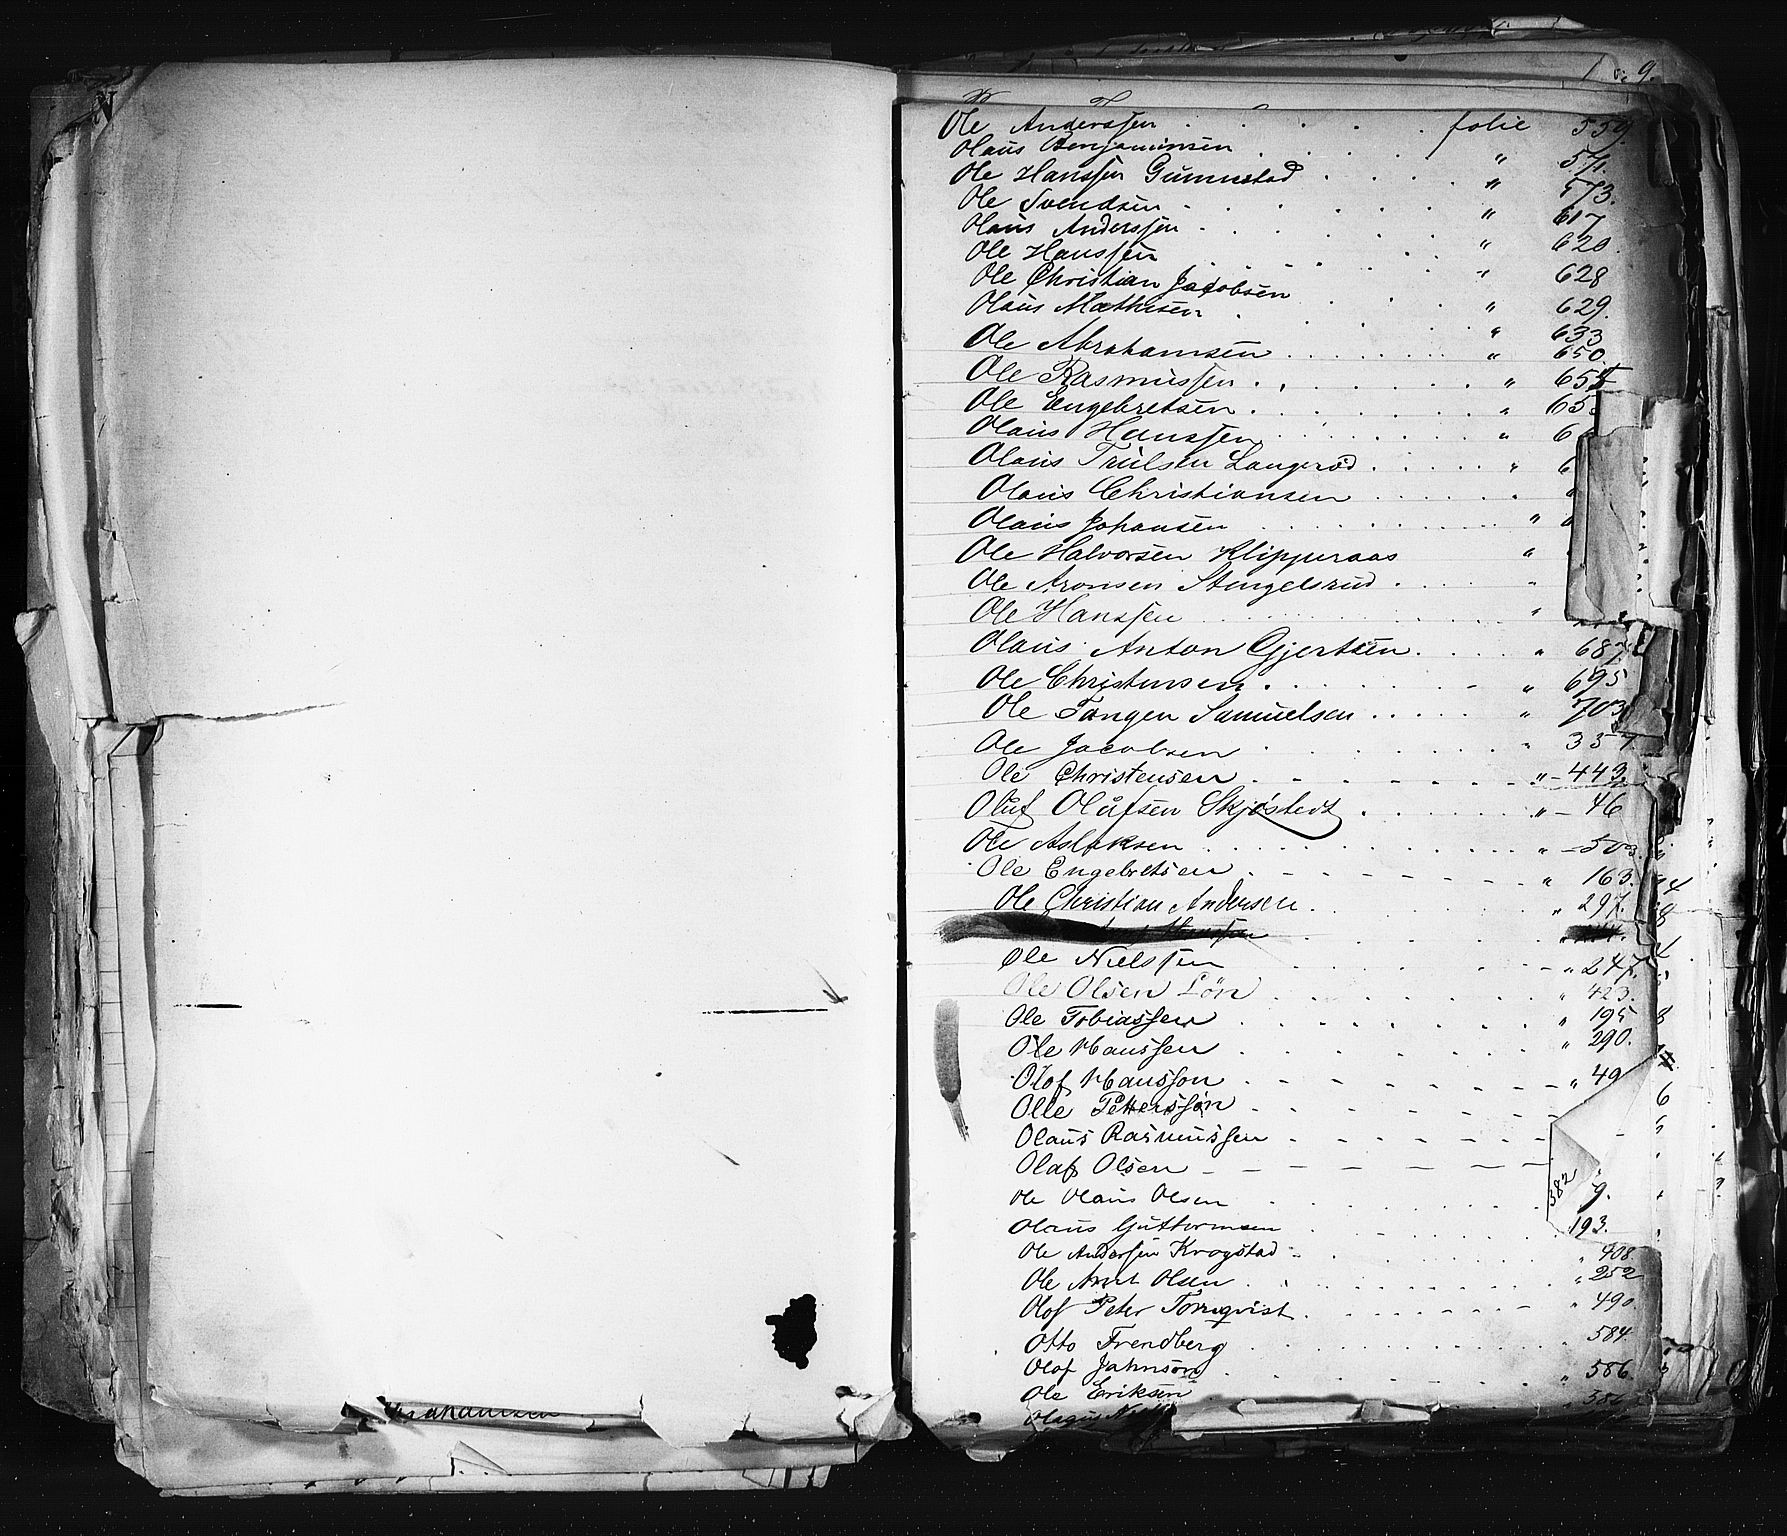 Ole Anderssen . . . . . folie 559.
Olaus Benjaminsen . . . . " 571.
Ole Hanssen Gumnestad . . . . " 573.
Ole Svendsen . . . . . " 617
Olaus Anderssen . . . . . " 620
Ole Hanssen . . . . . " 628
Ole Christian Jacobsen . . . " 629.
Olaus Mathisen . . . . " 633
Ole Abrahamsen . . . . . " 650.
Ole Rasmussen . . . . . " 655
Ole Engebretsen . . . . . " 65
Olaus Hanssen . . . . . " 6
Olaus Trulsen Langerød . . . . . " 6
Olaus Christiansen . . . . . "
Olaus Johansen . . . . . "
Ole Halvorsen Klipperaas "
Ole Aronsen Stengelsrud . . . "
Ole Hanssen . . . . . "
Olaus Anton Gjertsen . . . . " 687
Ole Christensen . . . . . " 695
Ole Tangen Samuelsen . . . . . " 703
Ole Jacobsen . . . . . " 357
Ole Christensen . . . . . " 443.
Oluf Olafsen Skjöstedt . . . . . " 46
Ole Aslaksen . . . . . " 503.
Ole Engebretsen . . . . . " 163.
Ole Christian Andersen . . . . . " 297.
Hanssen . . . . . "
Ole Nielssen . . . . . " 247.
Ole Olsen Lön . . . . . " 423.
Ole Tobiassen . . . . . " 195
Ole Hanssen . . . . . " 290.
Olof Hansson . . . . . " 49
Olle Pettersson . . . . .
Olaus Rasmussen . . . . .
Olaf Olsen . . . . . 382
Ole Olaus Olsen . . . . . 9.
Olaus Guttormsen . . . . . 193.
Ole Andersen Krogstad . . . . . " 408.
Ole Arnt Olsen . . . . . " 252
Olof Peter Törnqvist . . . . . " 490.
Otto Frendberg . . . . . " 584.
Olof Jahnson . . . . . " 586.
Ole Eriksen . . . . . " 386
Olagus
Abrahamsen